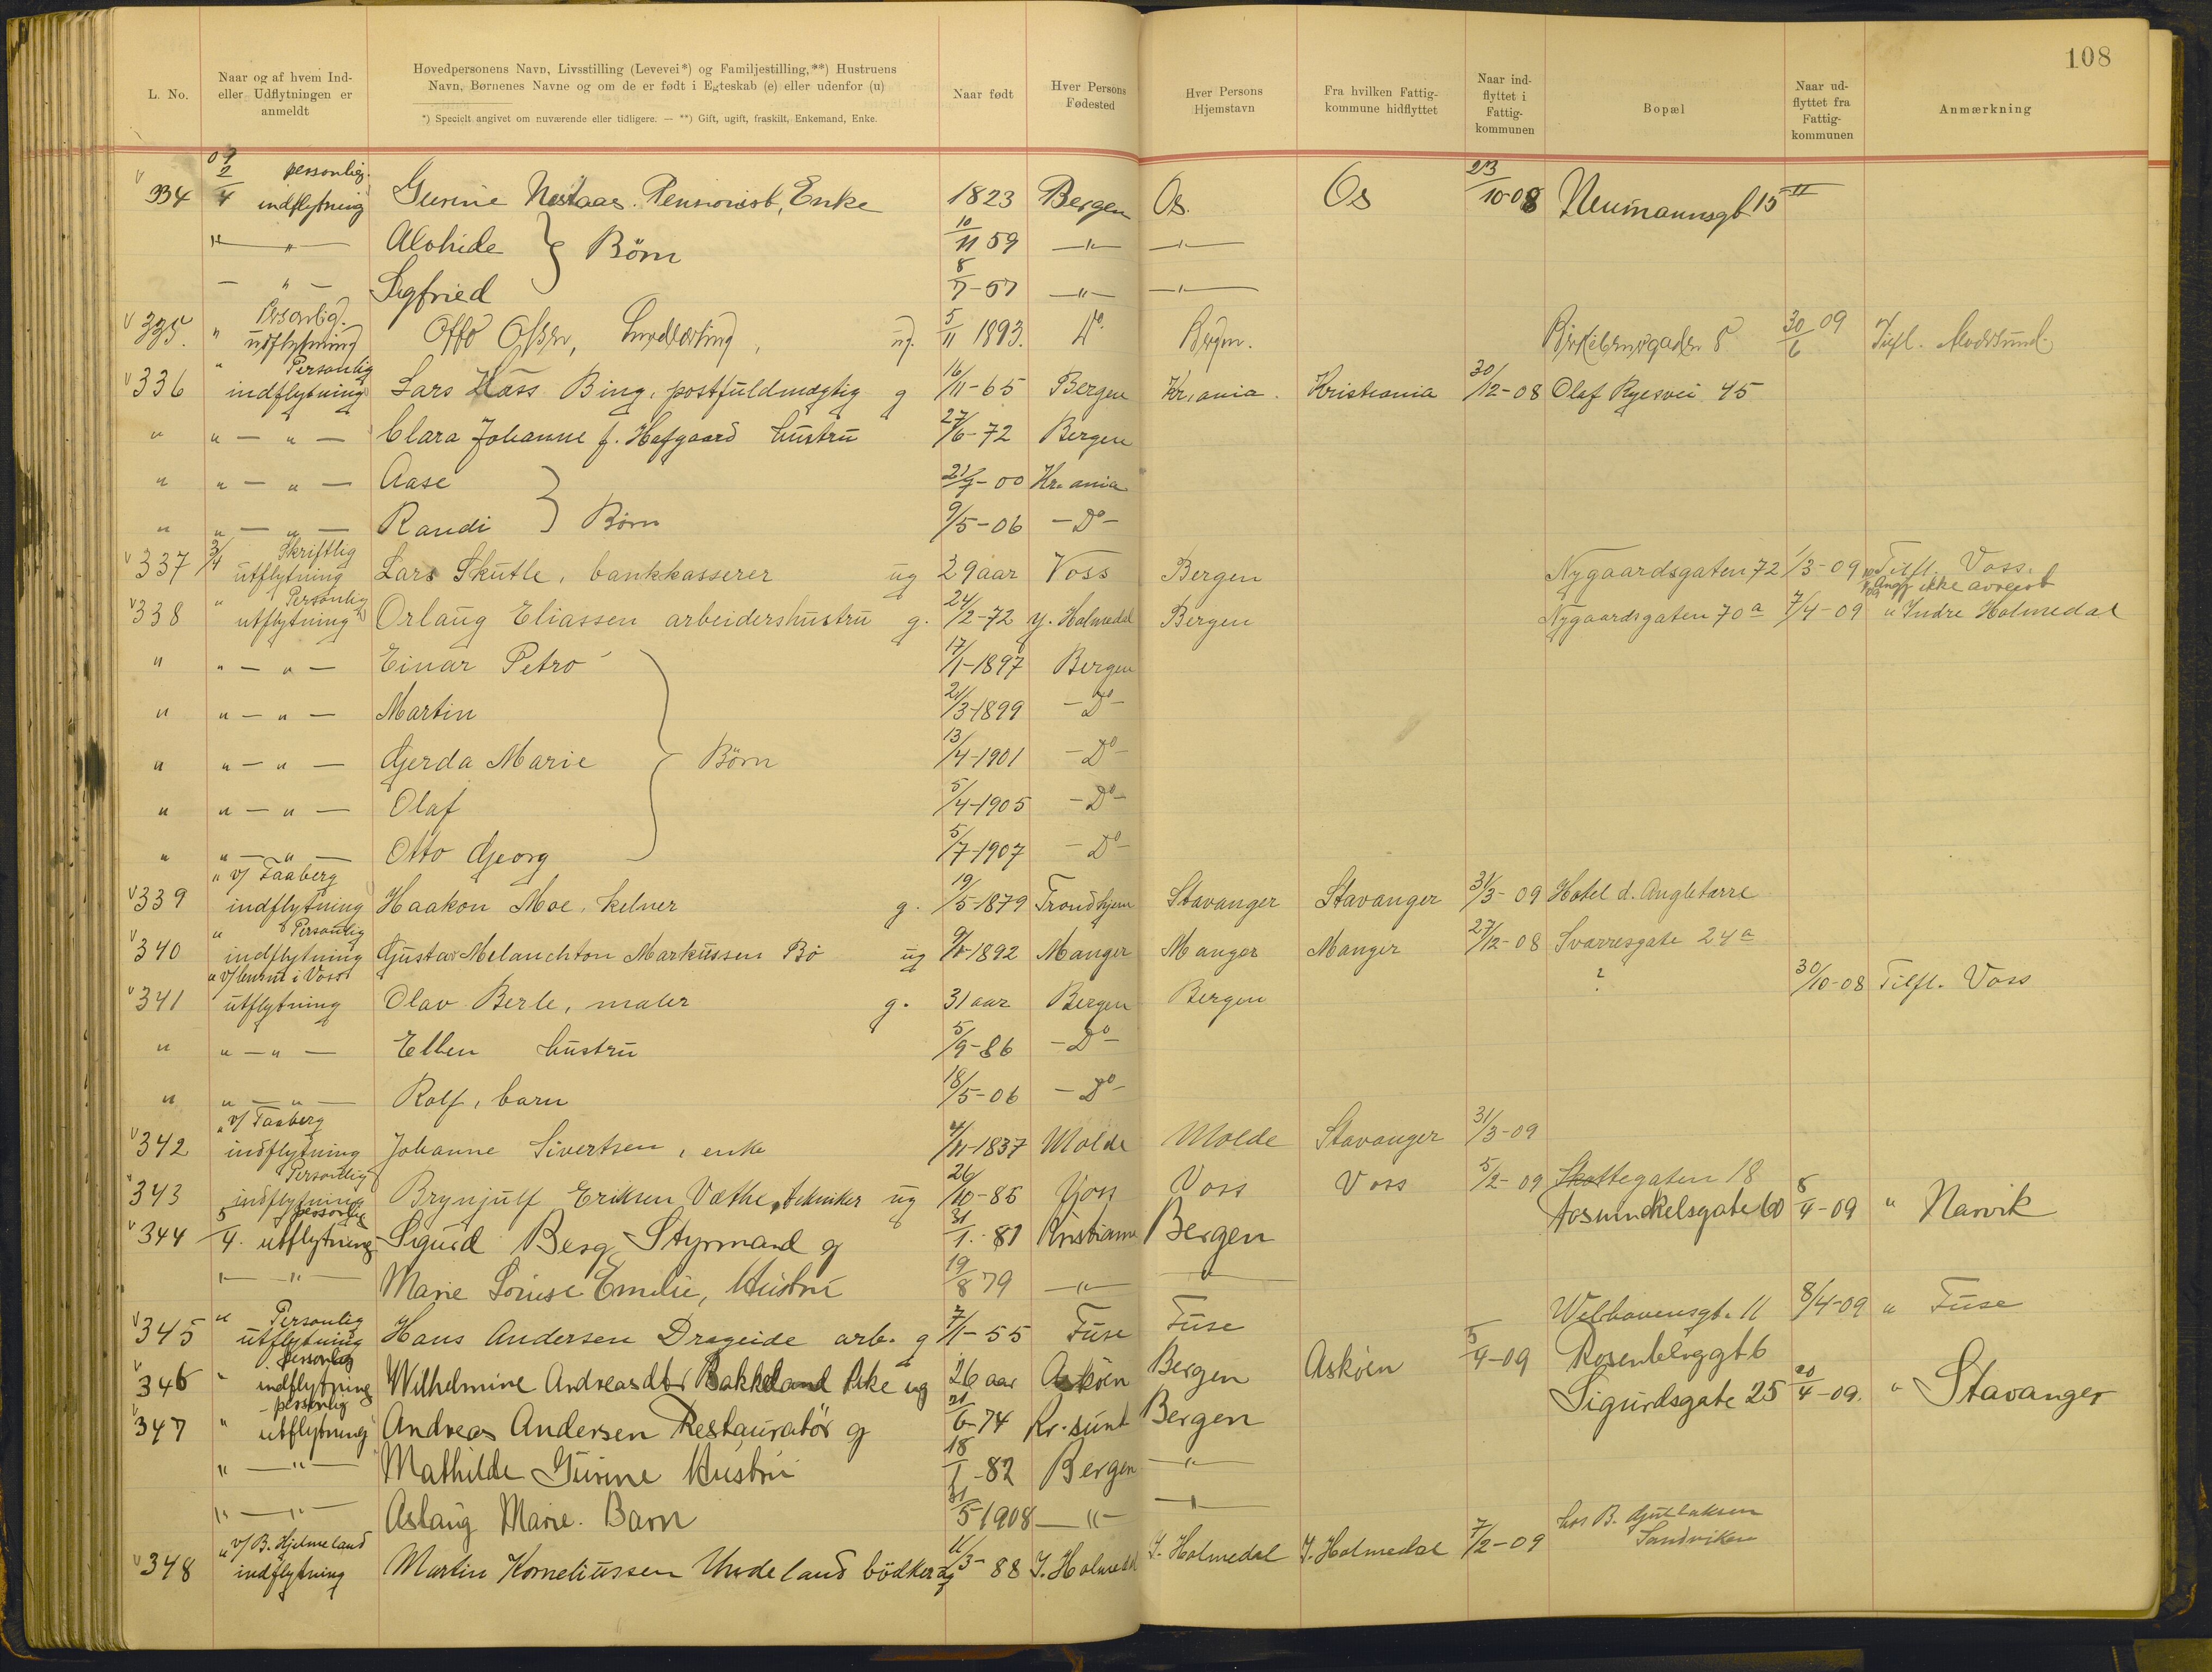 108
L. No.
Naar og af hvem Ind- eller Udflytningen er anmeldt
Høvedpersonens Navn, Livsstilling (Levevei*) og Familjestilling,**) Hustruens Navn, Børnenes Navne og om de er født i Egteskab (e) eller udenfor (u)
*) Specielt angivet om nuværende eller tidligere. — **) Gift, ugift, fraskilt, Enkemand, Enke.
Naar født
Hver Persons Fødested
Hver Persons Hjemstavn
Fra hvilken Fattigkommune hidflyttet
Naar indflyttet i Fattigkommunen
Bopæl
Naar udflyttet fra Fattigkommunen
Anmærkning
334 09 2/4 personlig indflytning Gurine Nestaas. Pensionist, Enke 1823 Bergen Os. Os 23/10-08 Neumannsgt 15 II
" Alvhide } Børn 10/11 59 — " — — " —
— " — Sigfried 8/7-57 — " — — " —
335. " Personlig. udflytning Otto Olsen, ug. 5/11 1893. Do. Bergen. Birkebeinergaden 8 30/6 09 Tilfl.
336 " Personlig indflytning Lars Hass Bing, postfuldmægtig g 16/11-65 Bergen Kr.ania. Kristiania 30/12-08 Olaf Ryesvei 45
" " — " — Clara Johanne f. Hofgaard hustru 27/6-72 Bergen
" " — " — Aase 21/7-00 Kr.ania
" " — " — Randi } Børn 9/5-06 — Do —
337 3/4 Skriftlig utflytning Lars Skutle, bankkasserer ug 29 aar Voss Bergen Nygaardsgaten 72 1/3-09 Tilfl. Voss.
ikke avreist
338 " Personlig utflytning Orlaug Eliassen arbeidershustru g. 24/2-72 Y. Holmedal Bergen Nygaardsgaten 70a 7/4-09 " Indre Holmedal
" " — " — Einar Petro 17/1-1897 Bergen
" " — " — Martin 21/3-1899 — Do —
" " — " — Gjerda Marie } Børn 13/4-1901 — Do —
" " — " — Olaf 5/4-1905 — Do —
" " — " — Otto Georg 5/7-1907 — Do —
339 " v/ Taaberg indflytning Haakon Moe, kelner g. 19/5-1879 Trondhjem Stavanger Stavanger 31/3-09 Hotel d. Angleterre
340 " Personlig indflytning Gustav Melanchton Markussen Bø ug 1892 Manger Manger Manger 27/12-08 Sverresgate 24a
341 " v/ lensm i Voss utflytning Olav Berle, maler g. 31 aar Bergen Bergen ? 30/10-08 Tilfl. Voss
" " — " — Ellen hustru 5/9-86 — Do —
" " — " — Rolf, barn 18/5-06 — Do —
342 " v/ Taaberg indflytning Johanne Sivertsen, enke 4/11-1837 Molde Molde Stavanger 31/3-09
343 Personlig indflytning Brynjulf Eriksen Væthe, tekniker ug 26/10-85 Voss Voss Voss 5/2-09 Skottegaten 18
344 5/4. personlig utflytning Sigurd Berg, Styrmand g 31/1. 81 Kristiania Bergen Absalonbeyersgate 60 8/4-09 " Narvik
" — " — Marie Louise Emilie, Hustru 19/8 79 — " — — " —
345 " Personlig utflytning Hans Andersen Drageide arb. g 7/1-55 Fuse Fuse Welhavensgt. 11 8/4-09 " Fuse
346 " personlig indflytning Wilhelmine Andreasdtr Bakkeland Pike ug 26 aar Askøen Bergen Askøen 5/4-09 Rosenberggt 6
347 " personlig utflytning Andreas Andersen Restauratør g 21/6-74 Kr.sund Bergen Sigurdsgate 25 20/4-09. " Stavanger
" — " — Mathilde Gurine Hustru 18/1-82 Bergen — " —
" — " — Aslaug Marie. Barn 31/5-1908 — " — — " —
348 " v/ B. Hjelmeland indflytning Martin Korneliussen Undeland bødker ug 11/3-88 I. Holmedal I. Holmedal I. Holmedal 7/2-09 hos B. Gutlaksen Sandviken